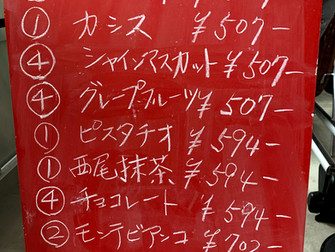 ① カシス ¥507-
④ シャインマスカット ¥507-
④ グレープフルーツ ¥507-
① ピスタチオ ¥594-
① 西尾抹茶 ¥594-
④ チョコレート ¥594-
② モンテビアンコ ¥702-